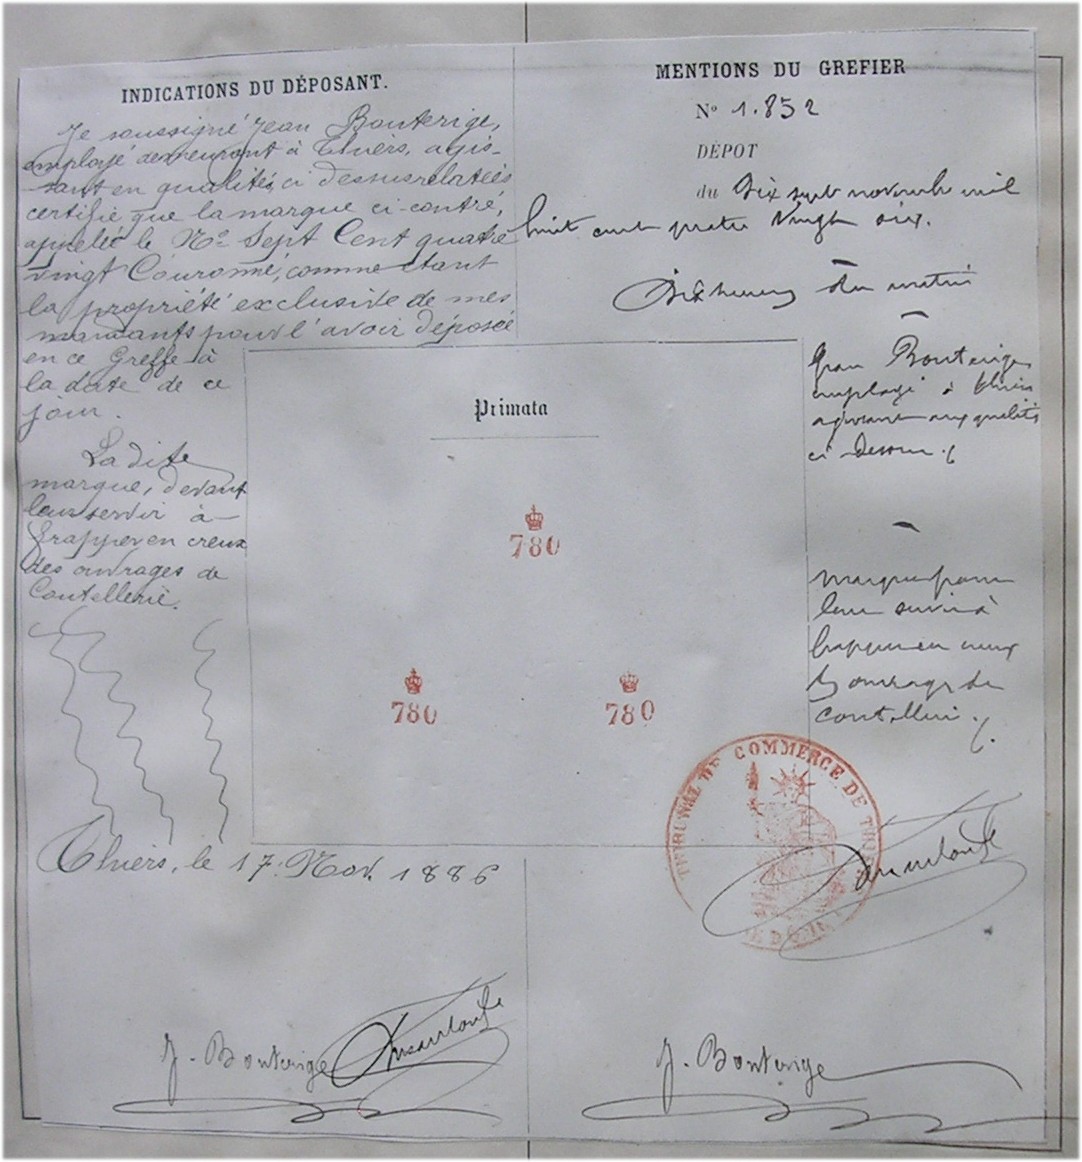 INDICATIONS DU DÉPOSANT.
Je soussigné Jean Bouterige,
employé demeurant à Thiers, agis-
sant en qualités ci dessus relatées
certifie que la marque ci-contre,
appelée le No Sept Cent quatre
vingt Couronné, comme étant
la propriété exclusive de mes
mandants pour l'avoir déposée
en ce Greffe à
la date de ce
jour.
La dite
marque, devant
leur servir à
frapper en creux
des ouvrages de
Coutellerie.
Thiers, le 17. Nov. 1886
J. Bouterige
Primata
780
780
780
MENTIONS DU GREFIER
No 1.852
DÉPOT
du Dix sept novembre mil
huit cent quatre vingt six.
Dix heures du matin
Jean Bouterige
employé à Thiers
agissant aux qualités
ci dessus.
marque pour
leur servir à
frapper en creux
des ouvrages de
coutellerie.
TRIBUNAL DE COMMERCE DE
J. Bouterige